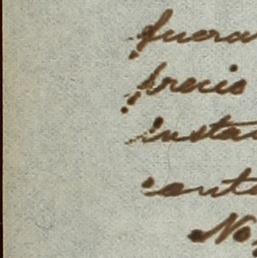 fuera
precio
insta
canta
No